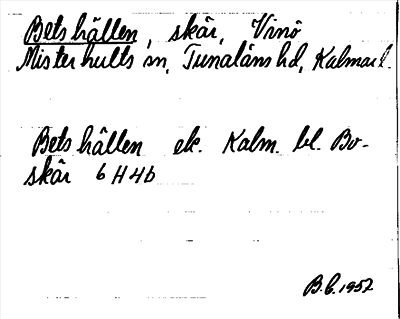 Betshällen, skär, Vinö
Misterhults sn, Tunaläns hd, Kalmar l.
Betshällen ek. Kalm. bl. Bo-
skär 6 H 4 b
B.C. 1952